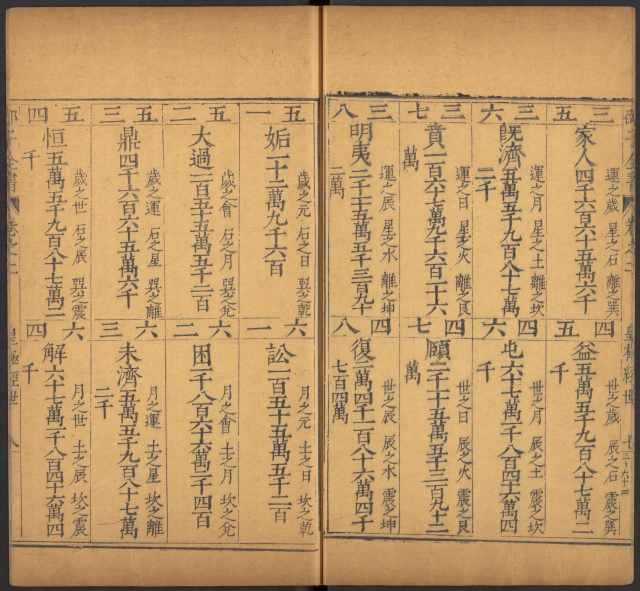 三五
運之歲 星之石 離之巽
家人四千六百六十五萬六千
三六
運之月 星之土 離之坎
既濟五萬五千九百八十七萬
二千
三七
運之日 星之火 離之艮
賁一百六十七萬九千六百一十六
萬
三八
運之辰 星之水 離之坤
明夷二千一十五萬五千三百九十
二萬
四五
世之歲 辰之石 震之巽
益五萬五千九百八十七萬二
千
四六
世之月 辰之土 震之坎
屯六十七萬一千八百四十六萬四
千
四七
世之日 辰之火 震之艮
頤二千一十五萬五千三百九十二
四八
世之辰 辰之水 震之坤
復二萬四千一百八十六萬四千
七百四萬
五一
歲之元 石之日 巽之乾
姤一十二萬九千六百
五二
歲之會 石之月 巽之兌
大過一百五十五萬五千二百
五三
歲之運 石之星 巽之離
鼎四千六百六十五萬六千
五四
歲之世 石之辰 巽之震
恒五萬五千九百八十七萬二
千
六一
月之元 土之日 坎之乾
訟一百五十五萬五千二百
六二
月之會 土之月 坎之兌
困一千八百六十六萬二千四百
六三
月之運 土之星 坎之離
未濟五萬五千九百八十七萬
二千
六四
月之世 土之辰 坎之震
解六十七萬一千八百四十六萬四
千